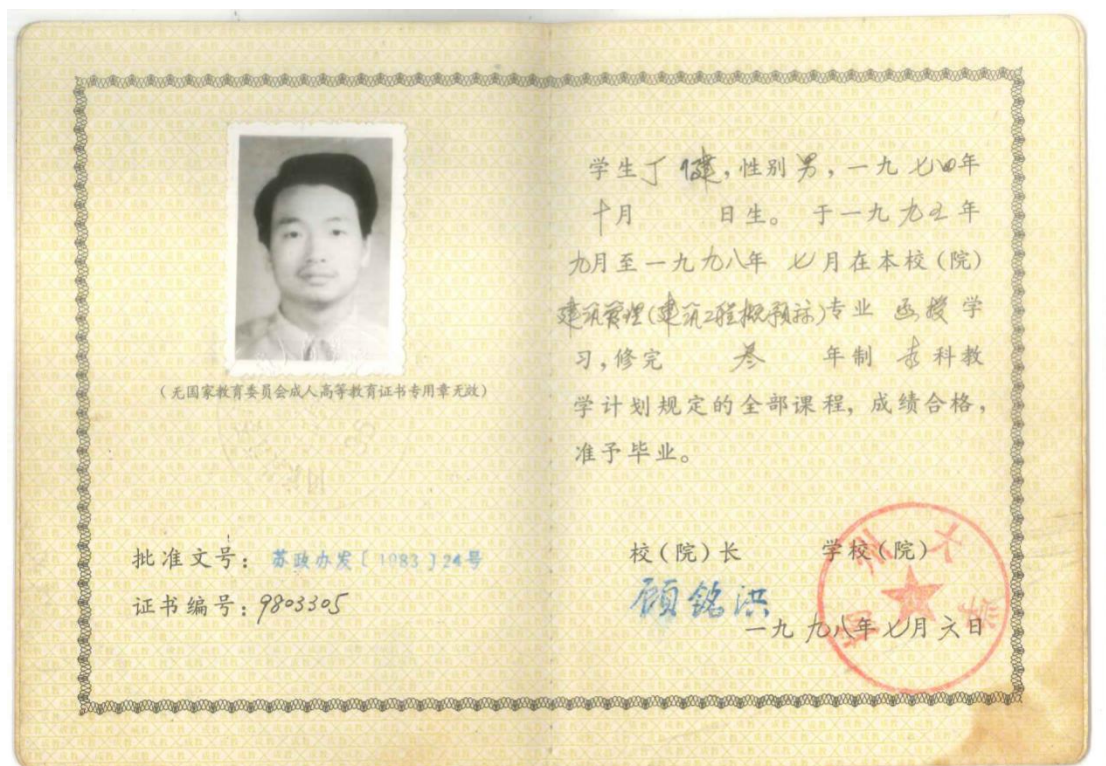 (无国家教育委员会成人高等教育证书专用章无效)
批准文号: 苏政办发〔1983〕24号
证书编号: 9803305
学生丁健,性别男,一九七四年
十月 日生。 于一九九五年
九月至一九九八年 七月在本校(院)
建筑管理(建筑工程概预算)专业 函授学
习,修完 叁 年制 专科教
学计划规定的全部课程,成绩合格,
准予毕业。
校(院)长 学校(院)
顾铭洪
一九九八年七月六日
扬州大学